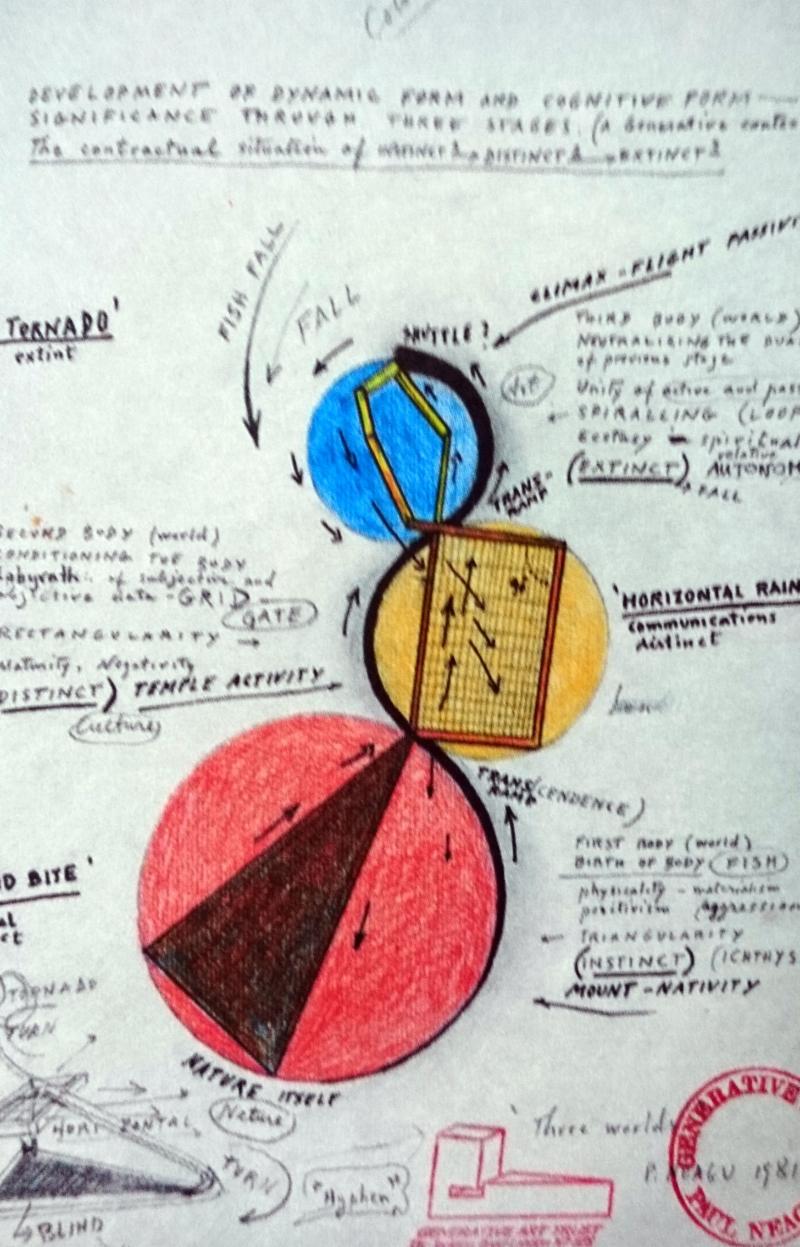 DEVELOPMENT OF DYNAMIC FORM AND COGNITIVE FORM
SIGNIFICANCE THROUGH THREE STAGES. (A Generative
The contractual situation of INSTINCT DISTINCT EXTINCT
FISH FALL
FALL
CLIMAX - FLIGHT
SHUTTLE?
TORNADO'
extint
THIRD BODY (WORLD)
NEUTRALISING THE
of previous stage
Unity of active and
SPIRALLING
Ecstasy spiritual
relative
(EXTINCT)
FALL
TRANS-
RAMP
SECOND BODY (world)
CONDITIONING THE BODY
of subjective and
data - GRID
GATE
RECTANGULARITY
Negativity
DISTINCT) TEMPLE ACTIVITY
Culture
'HORIZONTAL RAIN
communications
distinct
TRANS(CENDENCE)
RAMP
FIRST BODY (world)
BIRTH OF BODY (FISH)
physicality - materialism
positivism
TRIANGULARITY
(INSTINCT) (ICHTHYS
MOUNT-NATIVITY
BITE'
TORNADO
TURN
NATURE ITSELF
Nature
HORIZONTAL
TURN
"Hyphen"
BLIND
'Three worlds
P. NEAGU 1981
GENERATIVE
PAUL NEAG
GENERATIVE ART TRUST